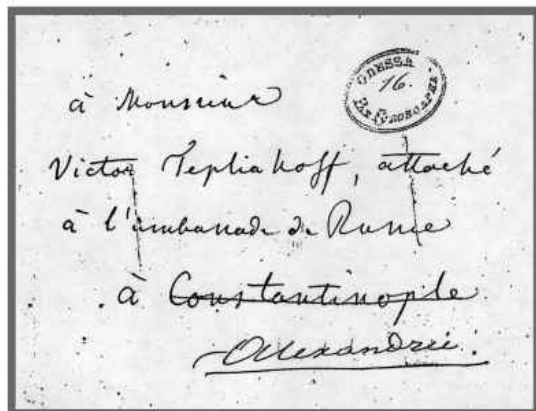 ODESSA
16.
à Monsieur
Victor Tepliakoff, attaché
à l'ambassade de Russie
à Constantinople
Alexandrie.